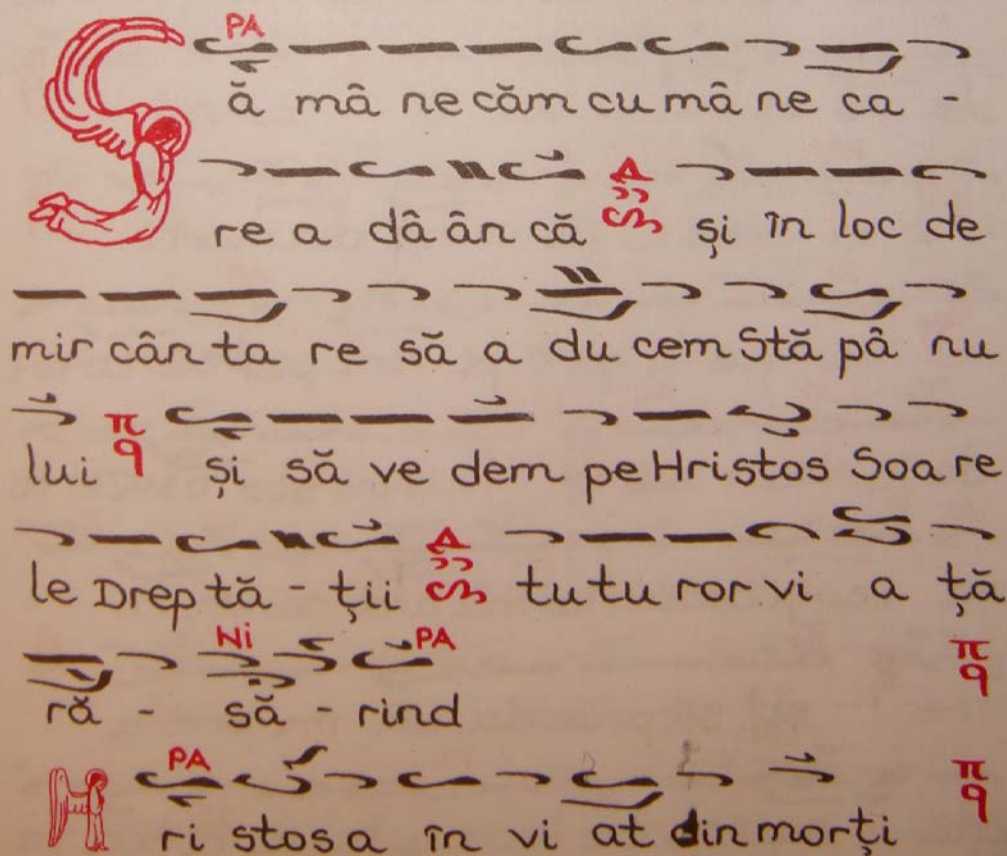 PA
Să mâ ne căm cu mâ ne ca -
re a dâ ân că Δ și în loc de
mir cân ta re să a du cem Stă pâ nu
lui π q și să ve dem pe Hristos Soa re
le Drep tă - ții Δ tu tu ror vi a ță
Ni PA π q
ră - să - rind
PA π q
Hri stos a în vi at din morți